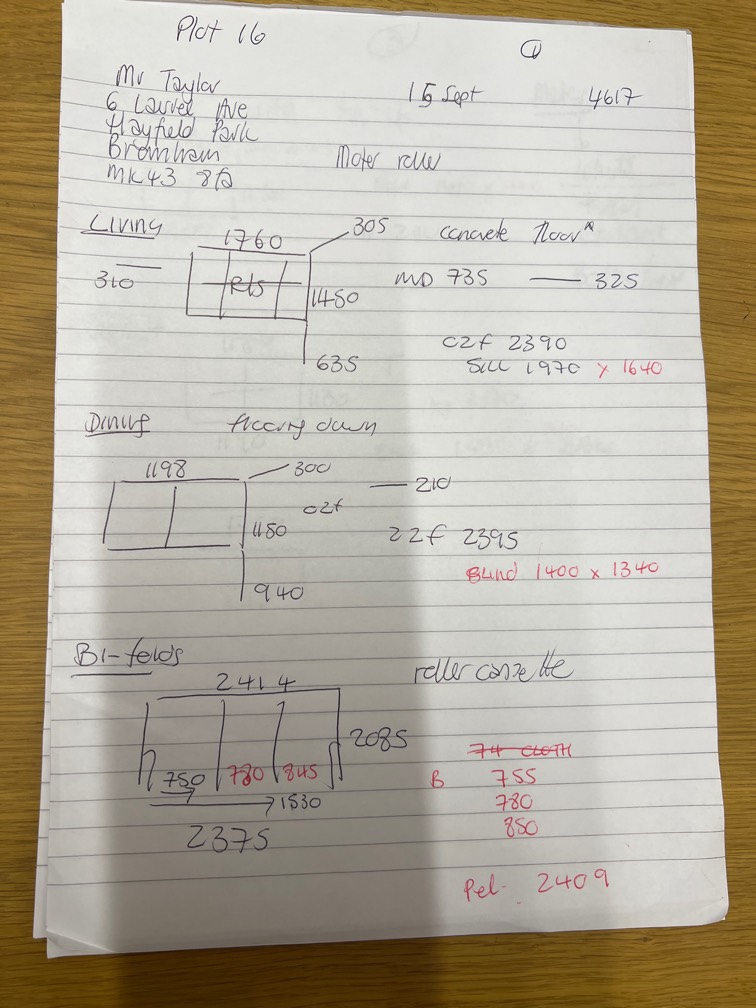 Plot 16
1
Mr Taylor
15 Sept
4617
6 Laurel Ave
Hayfield Park
Bromham
Moter roller
MK43 8
Living
1760
305
concrete floor*
310
RIS
1450
MD 735 — 325
635
C2F 2390
Sill 1970 x 1640
Dining
1198
300
210
c2f
1180
22f 2395
Blind 1400 x 1340
940
Bi-folds
2414
roller
2085
74 CLOTH
750 780 845
B 755
1530
780
2375
850
Pel. 2409